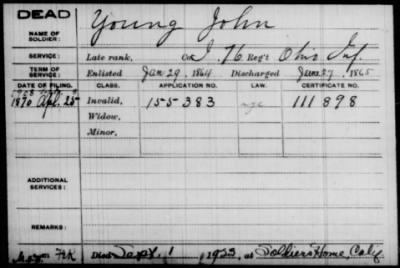 DEAD
NAME OF SOLDIER: Young John
SERVICE: Late rank, Co. I, 76 Reg't Ohio Inf.
TERM OF SERVICE: Enlisted Jan 29, 1864 Discharged June 27, 1865
DATE OF FILING. CLASS. APPLICATION NO. LAW. CERTIFICATE NO.
1870 Apl. 25 Invalid, 155383 111898
Widow,
Minor,
ADDITIONAL SERVICES:
REMARKS:
Died Sept. 1, 1923, at Soldiers Home, Calif